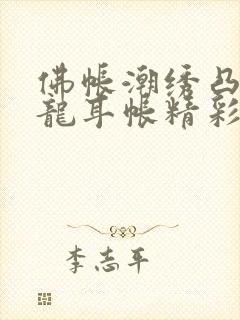 佛帳潮绣凸
龍耳帐精彩
李志平